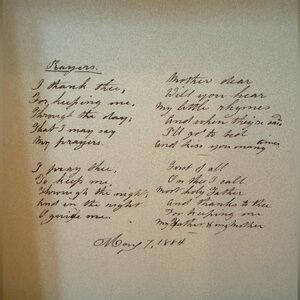 Prayers.
I thank thee,
For keeping me,
Through the day;
That I may say
My prayers.
I pray thee,
To keep me,
Through the night;
And in the right
O guide me.
Mother dear
Will you hear
My little rhymes
And when they're said
I'll go to bed
and kiss you many times
First of all
On thee I call
Most holy Father
And thanks to thee
For keeping me
My father & my Mother
May 7, 1884